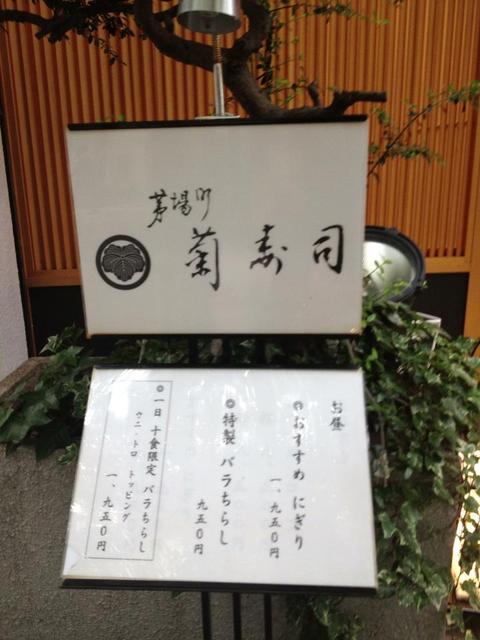 茅場町
菊寿司
お昼
おすすめ にぎり
一、九五0円
特製 バラちらし
九五0円
一日 十食限定 バラちらし
ウニ・トロ トッピング
一、九五0円